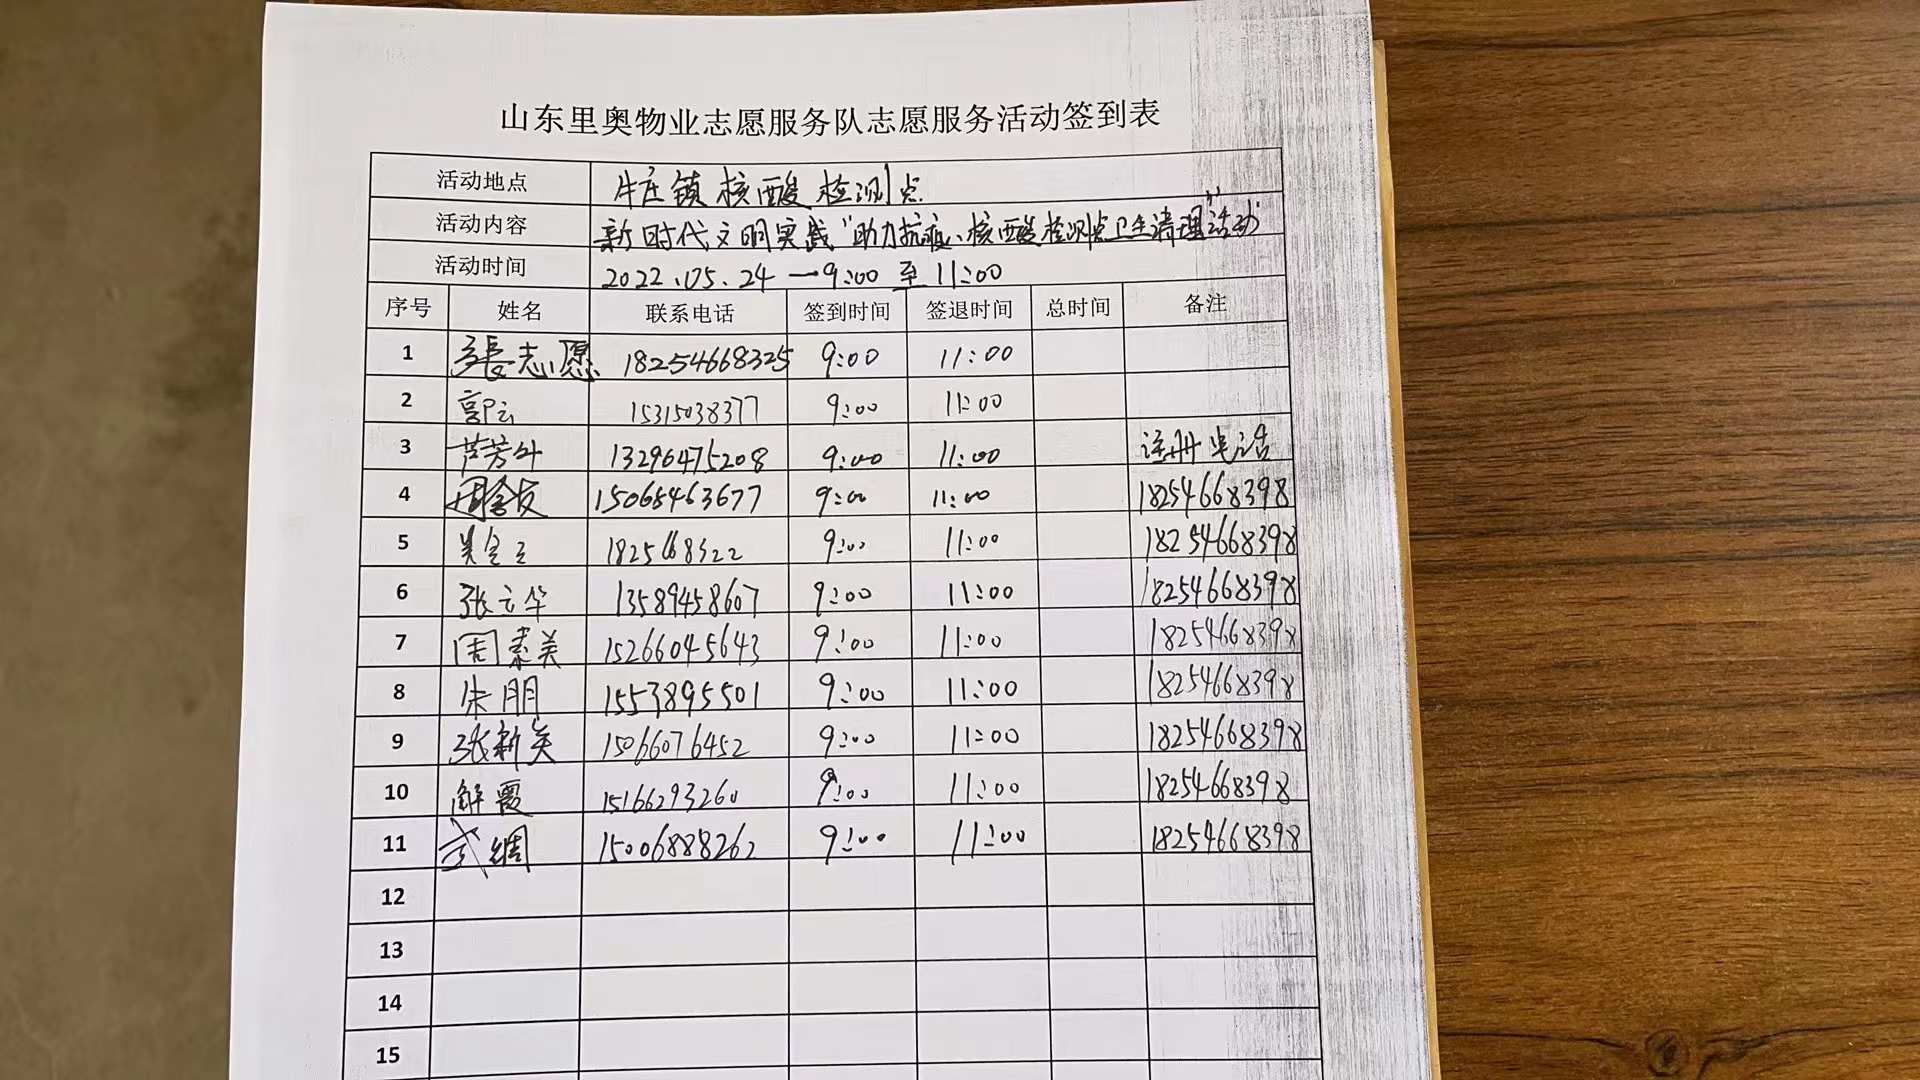 山东里奥物业志愿服务队志愿服务活动签到表
活动地点 牛庄镇核酸检测点
活动内容 新时代文明实践“助力抗疫、核酸检测点卫生清理”活动
活动时间 2022.05.24 — 9:00 至 11:00
序号 姓名 联系电话 签到时间 签退时间 总时间 备注
1 張志愿 18254668325 9:00 11:00
2 郭云 15315038377 9:00 11:00
3 芦芳外 13296475208 9:00 11:00 注册电话
4 周金友 15065463677 9:00 11:00 18254668398
5 吴全立 1825668322 9:00 11:00 18254668398
6 张立华 13589458607 9:00 11:00 18254668398
7 周素美 15266045643 9:00 11:00 18254668398
8 朱朋 1553895501 9:00 11:00 18254668398
9 张新美 15066076452 9:00 11:00 18254668398
10 解霞 15166293260 9:00 11:00 18254668398
11 武绸 15006888262 9:00 11:00 18254668398
12
13
14
15